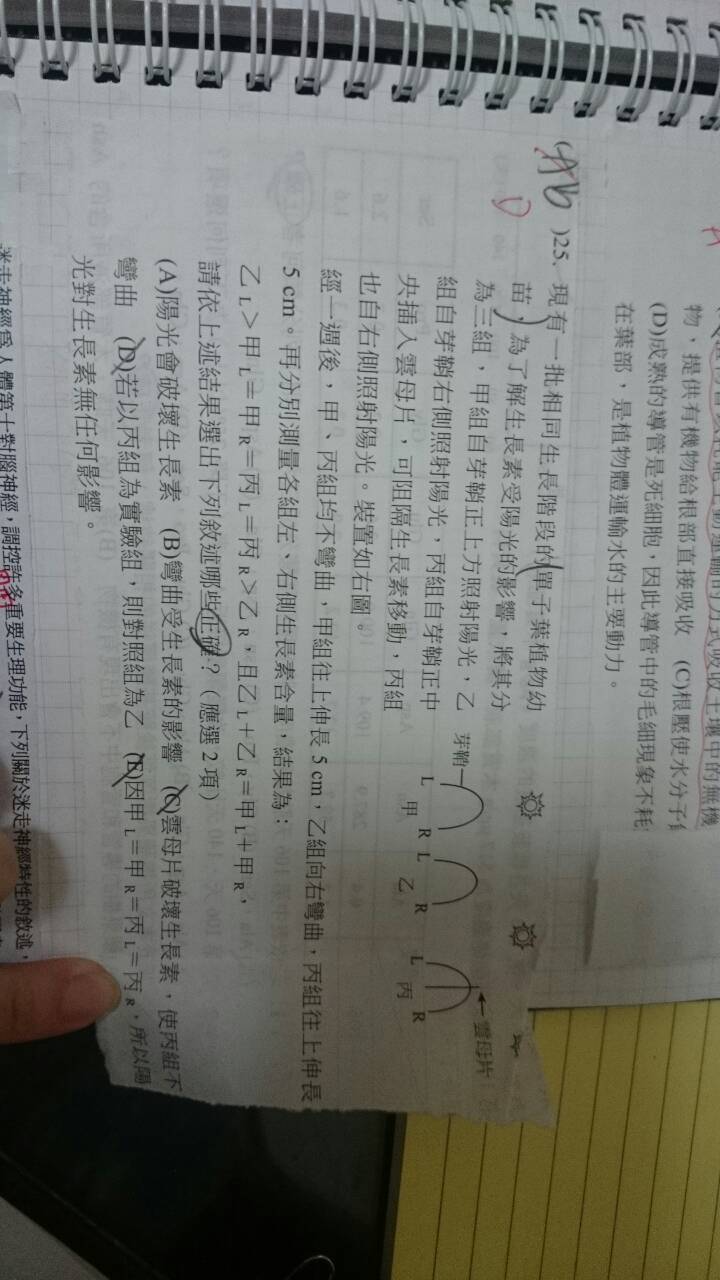 物，提供有機物給根部直接吸收 (C)根壓使水分子
(D)成熟的導管是死細胞，因此導管中的毛細現象不耗
在葉部，是植物體運輸水的主要動力。
AB
D
)25、現有一批相同生長階段的單子葉植物幼
苗，為了解生長素受陽光的影響，將其分
為三組，甲組自芽鞘正上方照射陽光，乙
組自芽鞘右側照射陽光，丙組自芽鞘正中
央插入雲母片，可阻隔生長素移動，丙組
也自右側照射陽光。裝置如右圖。
芽鞘
L R
甲
L R
乙
L R
丙
雲母片
經一週後，甲、丙組均不彎曲，甲組往上伸長 5 cm，乙組向右彎曲，丙組往上伸長
5 cm。再分別測量各組左、右側生長素含量，結果為：
乙L＞甲L＝甲R＝丙L＝丙R＞乙R，且乙L＋乙R＝甲L＋甲R，
請依上述結果選出下列敘述哪些正確？（應選 2 項）
(A)陽光會破壞生長素 (B)彎曲受生長素的影響 (C)雲母片破壞生長素，使丙組不
彎曲 (D)若以丙組為實驗組，則對照組為乙 (E)因甲L＝甲R＝丙L＝丙R，所以陽
光對生長素無任何影響。
迷走神經為人體第十對腦神經，調控許多重要生理功能，下列關於迷走神經特性的敘述，